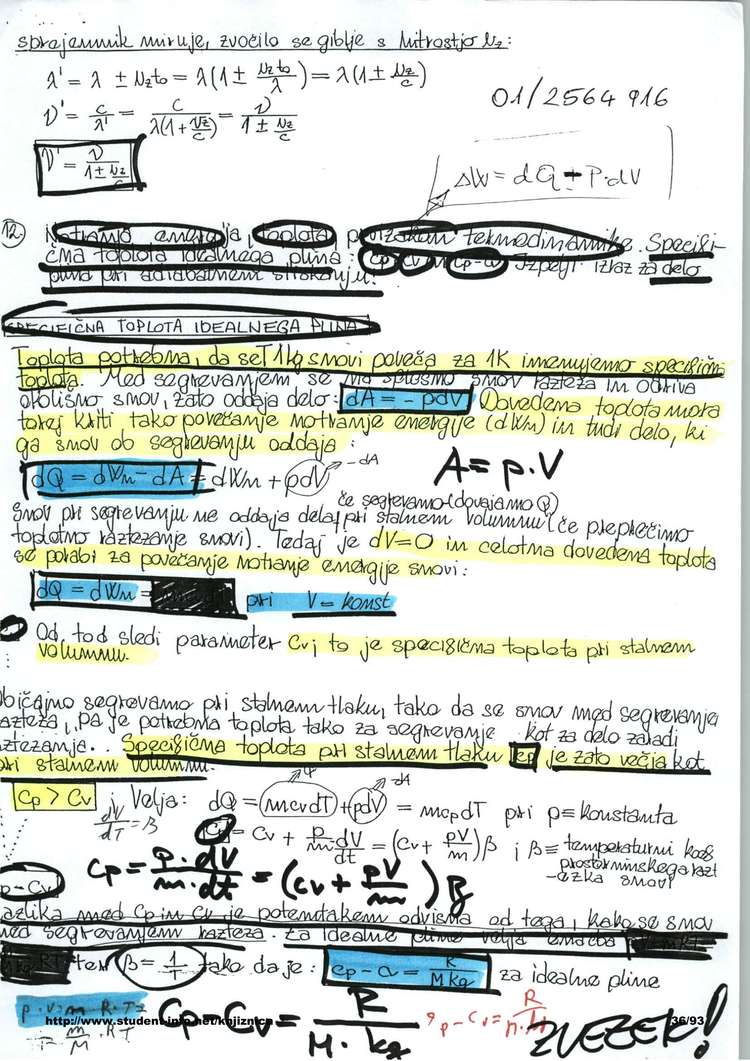 sprejemnik miruje, zvočilo se giblje s hitrostjo νz:
λ' = λ ± νzto = λ(1 ± νzto/λ) = λ(1 ± νz/c)
ν' = c/λ' = c/λ(1+νz/c) = ν/1 ± νz/c
01/2564 916
ν' = ν/1 ± νz/c
ΔW = dQ - P·dV
12 Notranja energija, toplota, prvi zakon termodinamike. Specifi-
čna toplota idealnega plina: cp-cv. Izpelji izraz za delo
plina pri adiabatnem stiskanju.
SPECIFIČNA TOPLOTA IDEALNEGA PLINA
Toplota potrebna, da se T 1kg snovi poveča za 1K imenujemo specifična
toplota. Med segrevanjem se na splošno snov razteza in odriva
okolišno snov, zato oddaja delo: dA = - pdV Dovedena toplota mora
torej kriti tako povečanje notranje energije (dWn) in tudi delo, ki
ga snov ob segrevanju oddaja:
dQ = dWn - dA = dWn + pdV -dA
A = p·V
če segrevamo (dovajamo Q)
Snov pri segrevanju ne oddaja dela, pri stalnem volumnu (če preprečimo
toplotno raztezanje snovi). Tedaj je dV=0 in celotna dovedena toplota
se porabi za povečanje notranje energije snovi:
dQ = dWn = pri V = konst
Od tod sledi parameter Cv; to je specifična toplota pri stalnem
volumnu.
Običajno segrevamo pri stalnem tlaku, tako da se snov med segrevanje
razteza, pa je potrebna toplota tako za segrevanje kot za delo zaradi
raztezanja. Specifična toplota pri stalnem tlaku cp je zato večja kot
pri stalnem volumnu.
Cp > Cv ; Velja: dQ = mcvdT + pdV = mcpdT pri p = konstanta
-dA
dV/dT = β
= Cv + p/m·dV/dt = (Cv + pV/m)β ; β = temperaturni koef
prostorninskega razt
-ezka snovi
Cp = P·dV/m·dt = (cv + pV/m)β
p-Cv
azlika med Cp in Cv je potemtakem odvisna od tega, kako se snov
med segrevanjem razteza. Za idealne pline velja enačba
ter β = 1/T tako da je: cp - cv = R/M kg za idealne pline
Cp - Cv = R/M·kg
http://www.student-info.net/knjiznica
36/93
ZVEZEK!